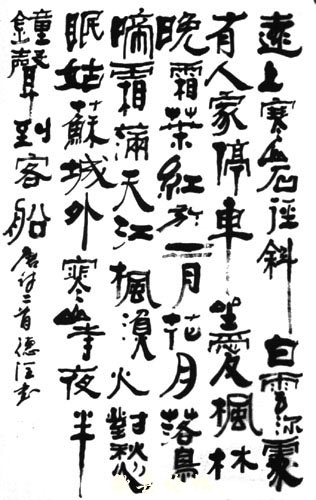 遠上寒山石徑斜白雲深處
有人家停車坐愛楓林
晚霜葉紅於二月花月落烏
啼霜滿天江楓漁火對愁
眠姑蘇城外寒山寺夜半
鐘聲到客船唐诗二首德书